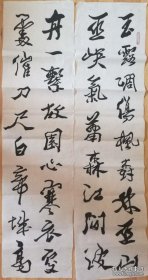 玉露凋傷楓樹林巫山
巫峽氣蕭森江間波
舟一繫故園心寒衣處
處催刀尺白帝城高